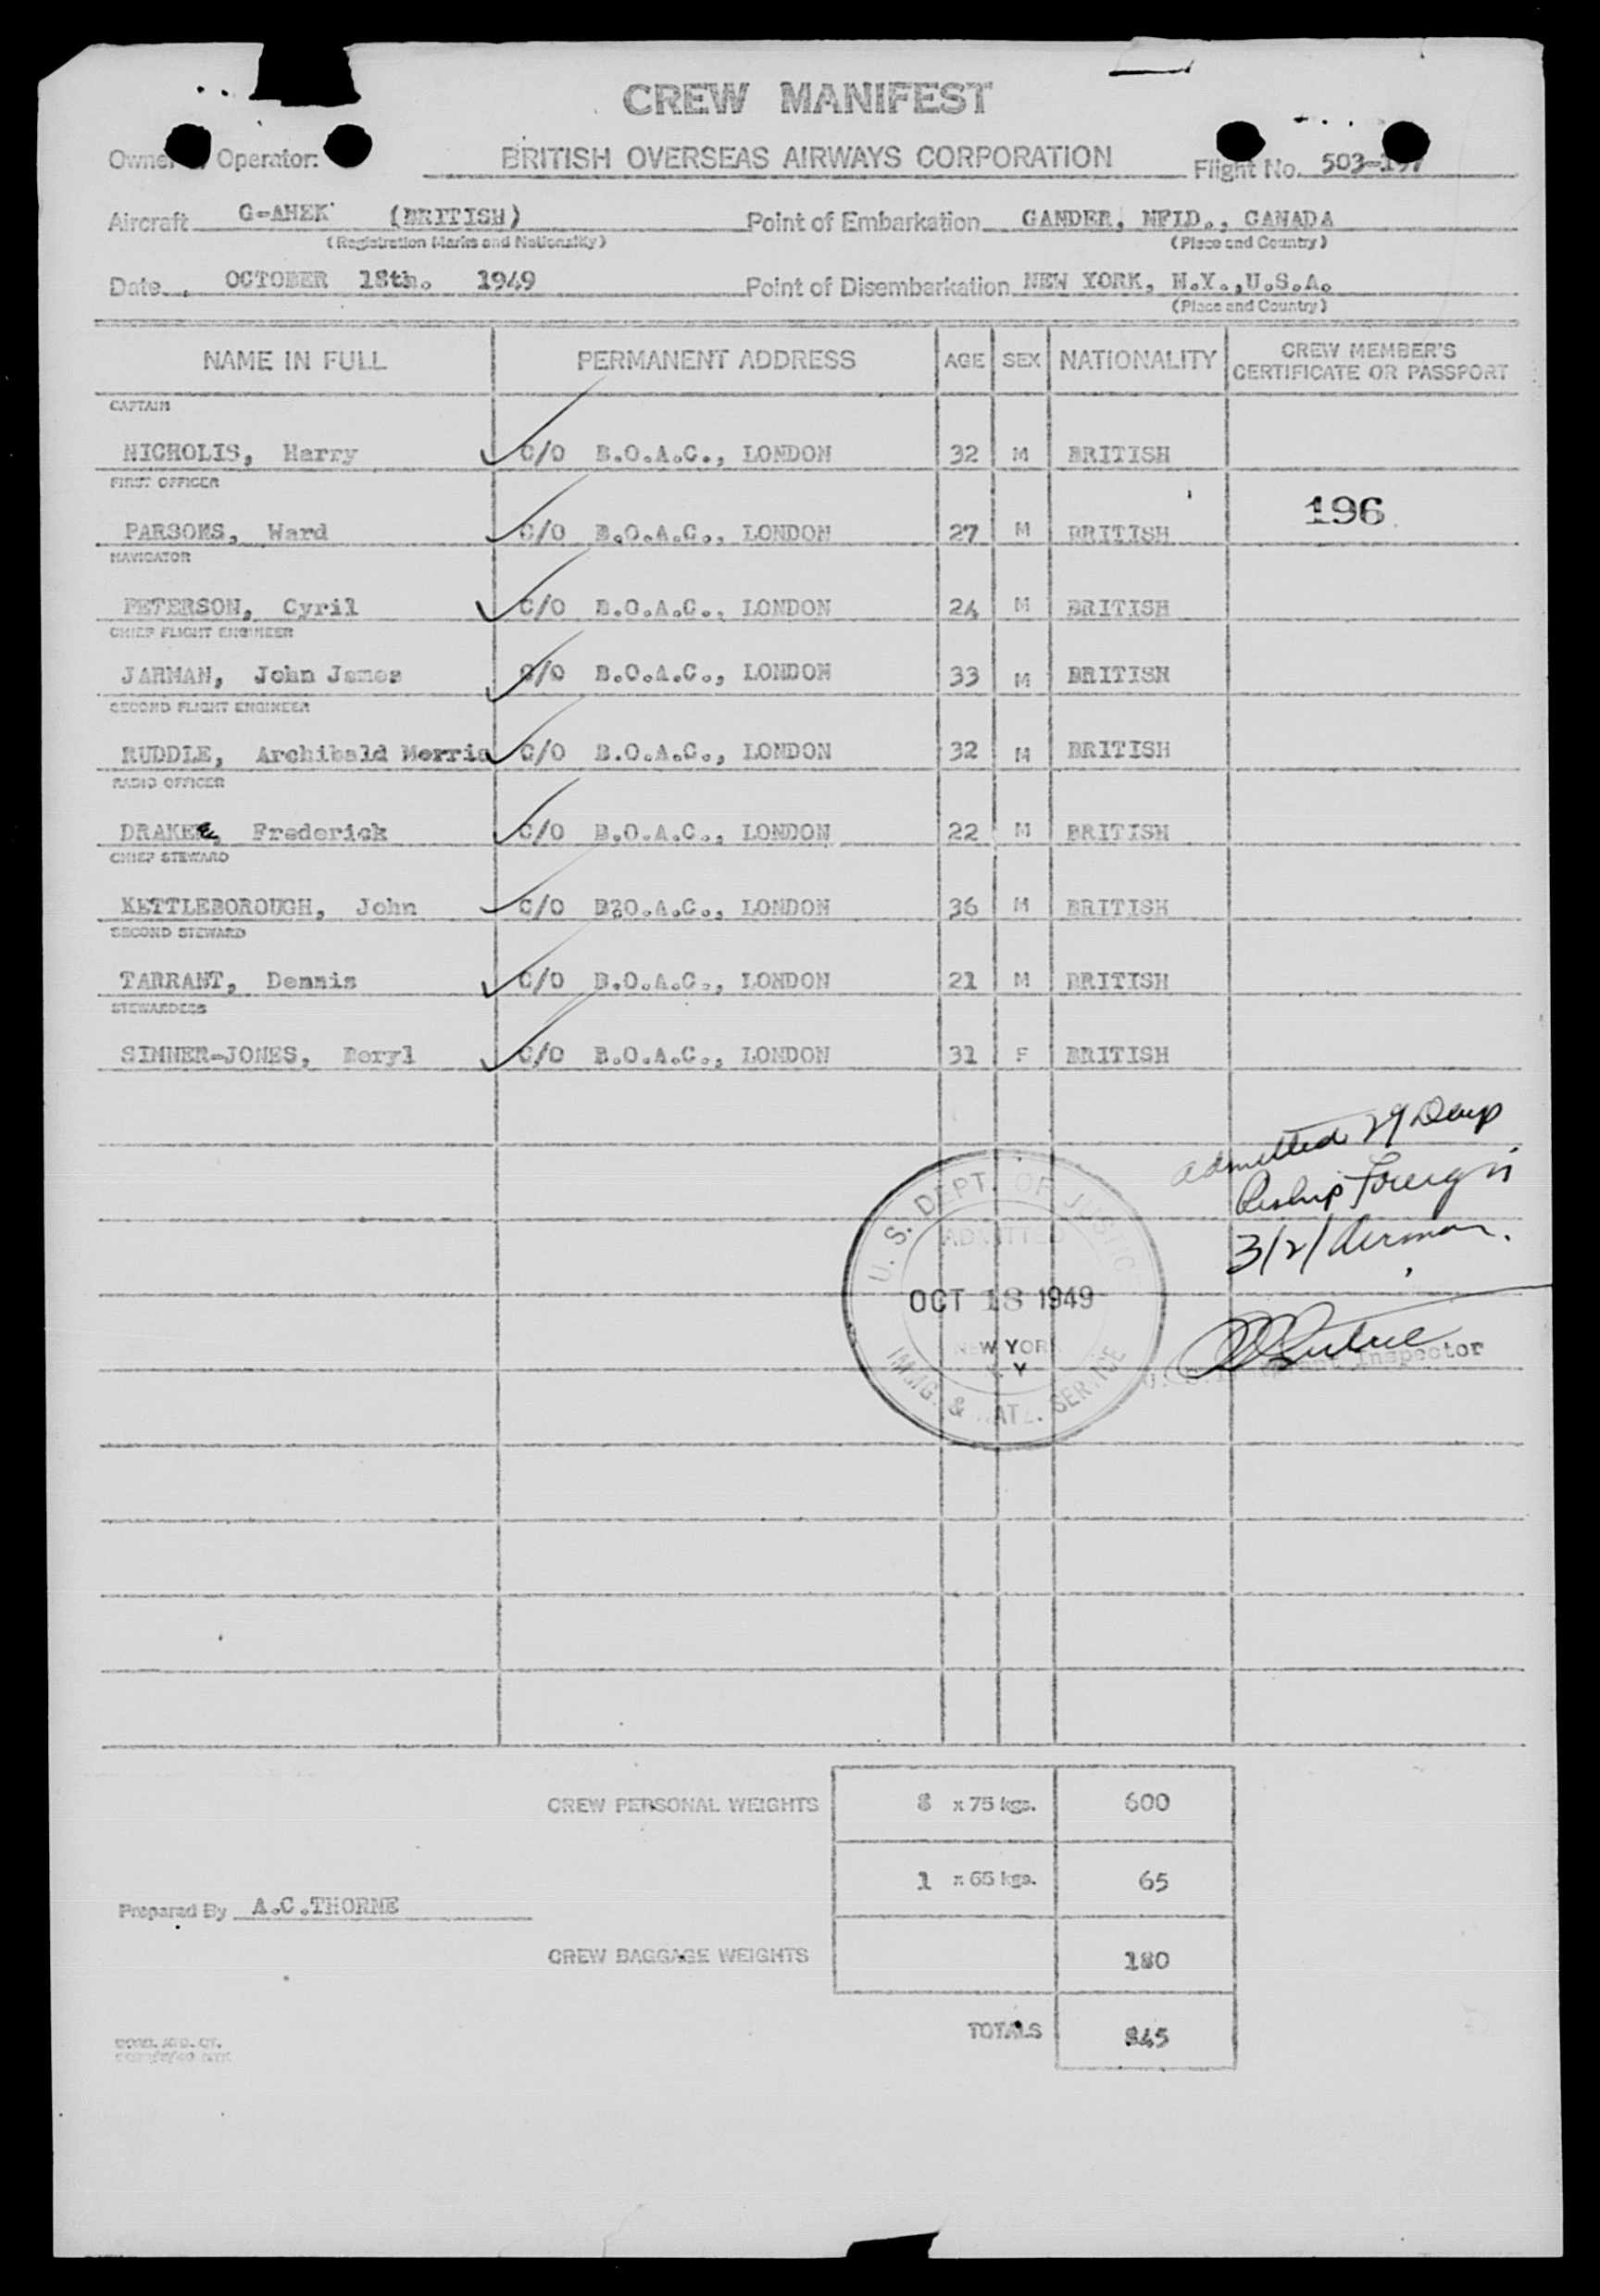 CREW MANIFEST
Owner Operator: BRITISH OVERSEAS AIRWAYS CORPORATION Flight No. 503-197
Aircraft G-AHEK (BRITISH) Point of Embarkation GANDER, NFLD., CANADA
(Registration Marks and Nationality) (Place and Country)
Date OCTOBER 18th. 1949 Point of Disembarkation NEW YORK, N.Y., U.S.A.
(Place and Country)
NAME IN FULL PERMANENT ADDRESS AGE SEX NATIONALITY CREW MEMBER'S CERTIFICATE OR PASSPORT
CAPTAIN
NICHOLIS, Harry C/O B.O.A.C., LONDON 32 M BRITISH
FIRST OFFICER
196
PARSONS, Ward C/O B.O.A.C., LONDON 27 M BRITISH
NAVIGATOR
PETERSON, Cyril C/O B.O.A.C., LONDON 24 M BRITISH
CHIEF FLIGHT ENGINEER
JARMAN, John James C/O B.O.A.C., LONDON 33 M BRITISH
SECOND FLIGHT ENGINEER
RUDDLE, Archibald Morris C/O B.O.A.C., LONDON 32 M BRITISH
RADIO OFFICER
DRAKE, Frederick C/O B.O.A.C., LONDON 22 M BRITISH
CHIEF STEWARD
KETTLEBOROUGH, John C/O B?O.A.C., LONDON 36 M BRITISH
SECOND STEWARD
TARRANT, Dennis C/O B.O.A.C., LONDON 21 M BRITISH
STEWARDESS
SIMNER-JONES, Beryl C/O B.O.A.C., LONDON 31 F BRITISH
admitted 29 Days
Airship Foreign
3/2/ Airman.
U. S. DEPT. OF JUSTICE
ADMITTED
OCT 18 1949
NEW YORK
N Y
IMMG. & NATZ. SERVICE
Inspector
CREW PERSONAL WEIGHTS 8 x 75 kgs. 600
1 x 65 kgs. 65
Prepared By A.C.THORNE
CREW BAGGAGE WEIGHTS 180
TOTALS 845